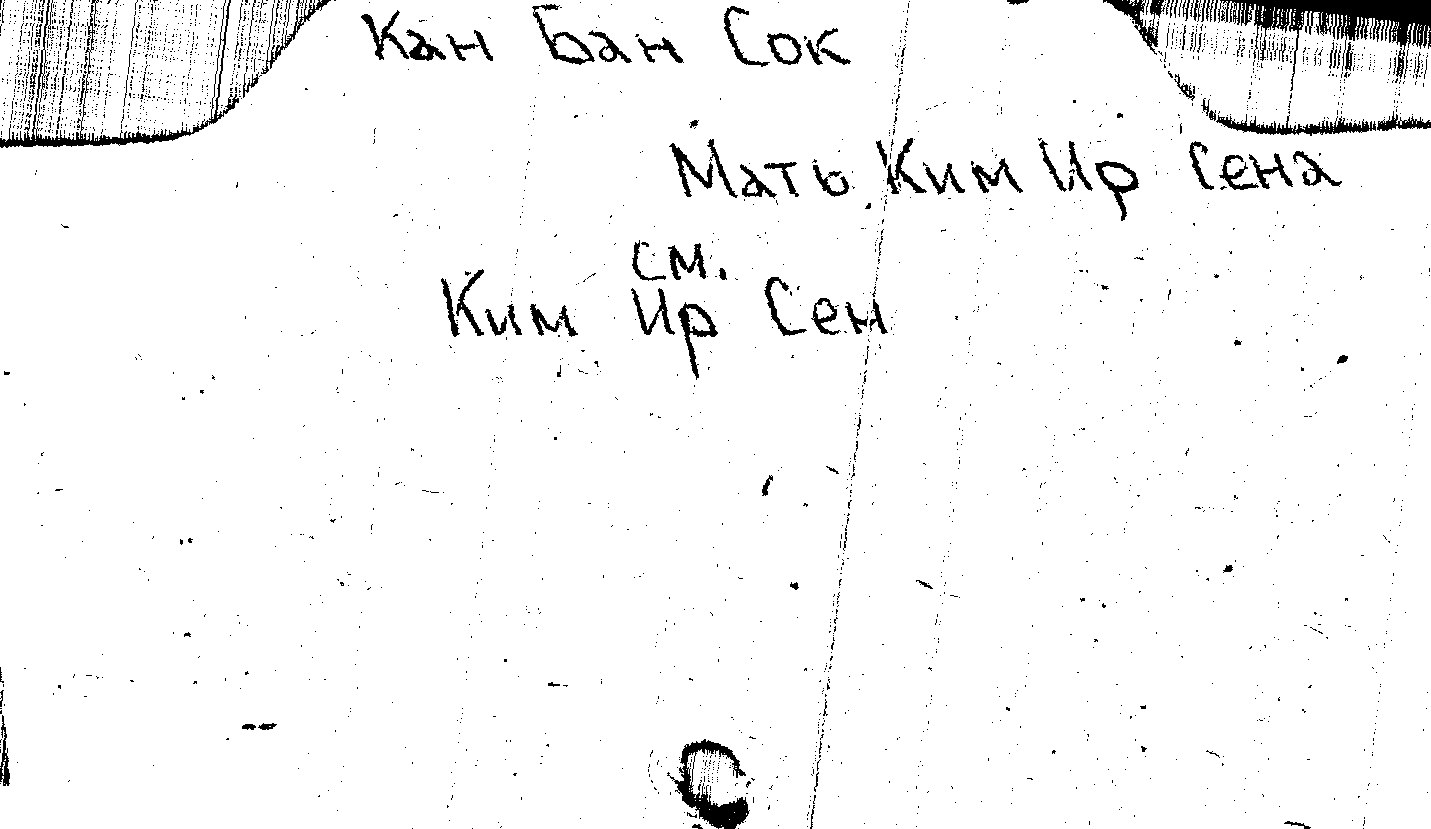 Кан Бан Сок
Мать Ким Ир Сена
см.
Ким Ир Сен